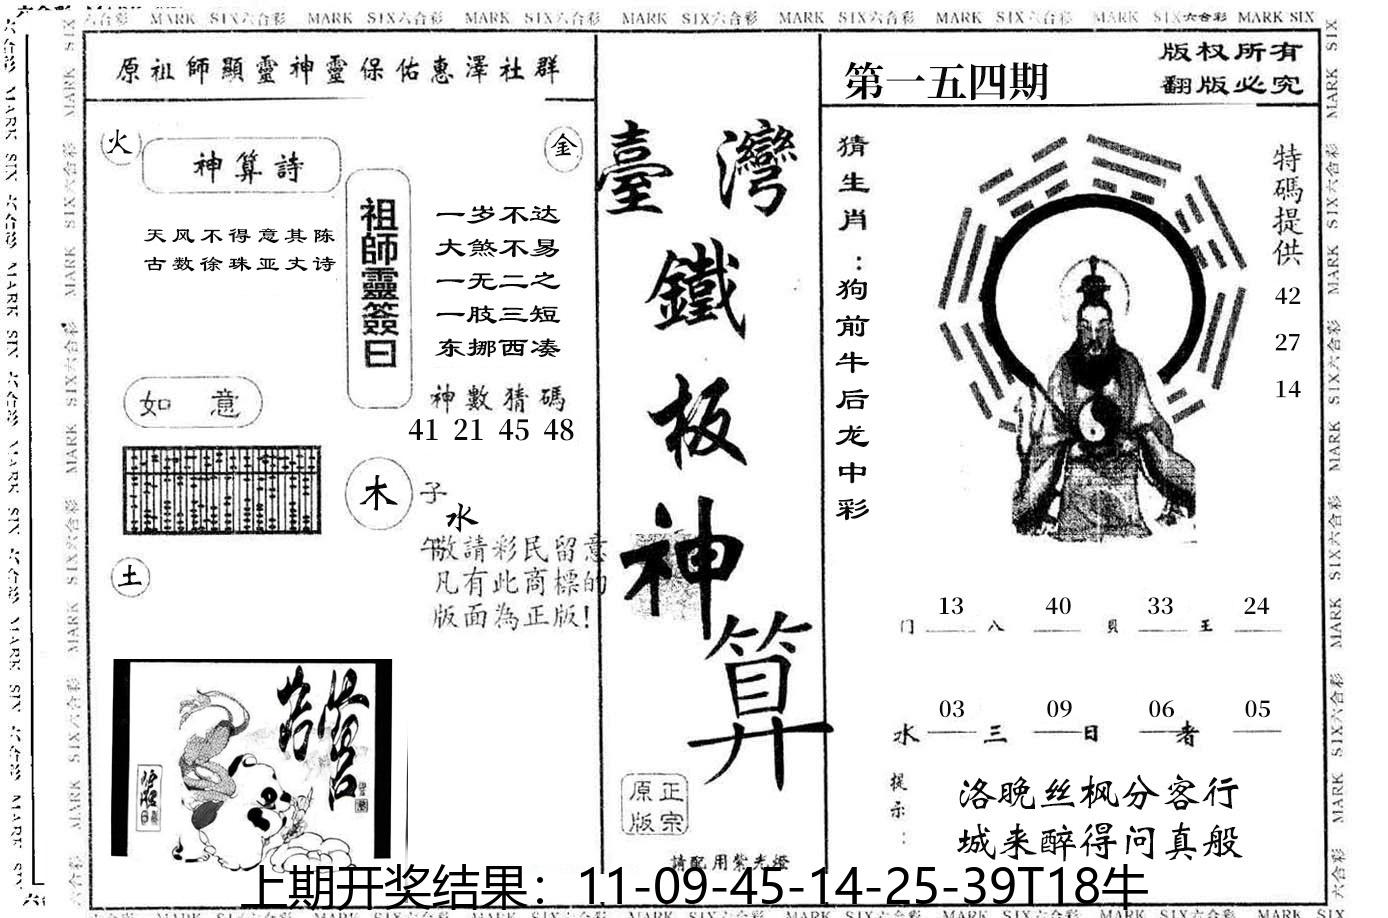 MARK SIX六合彩 MARK SIX六合彩 MARK SIX六合彩 MARK SIX六合彩 MARK SIX六合彩 MARK SIX六合彩 MARK SIX六合彩 MARK SIX六合彩 MARK SIX
原祖師顯靈神靈保佑惠澤社群
火
金
神算詩
天风不得意其陈
古数徐珠亚丈诗
祖師靈簽曰
一岁不达
大煞不易
一无二之
一肢三短
东挪西凑
神數猜碼
41 21 45 48
如意
木
子
水
午
土
敬請彩民留意
凡有此商標的
版面為正版!
臺灣
鐵
板
神
算
正宗
原版
請配用紫光燈
第一五四期
版权所有
翻版必究
猜生肖:狗前牛后龙中彩
特碼提供
42
27
14
13 40 33 24
门 八 貝 王
03 09 06 05
水 三 日 者
提示:
洛晚丝枫分客行
城来醉得问真般
上期开奖结果：11-09-45-14-25-39T18牛